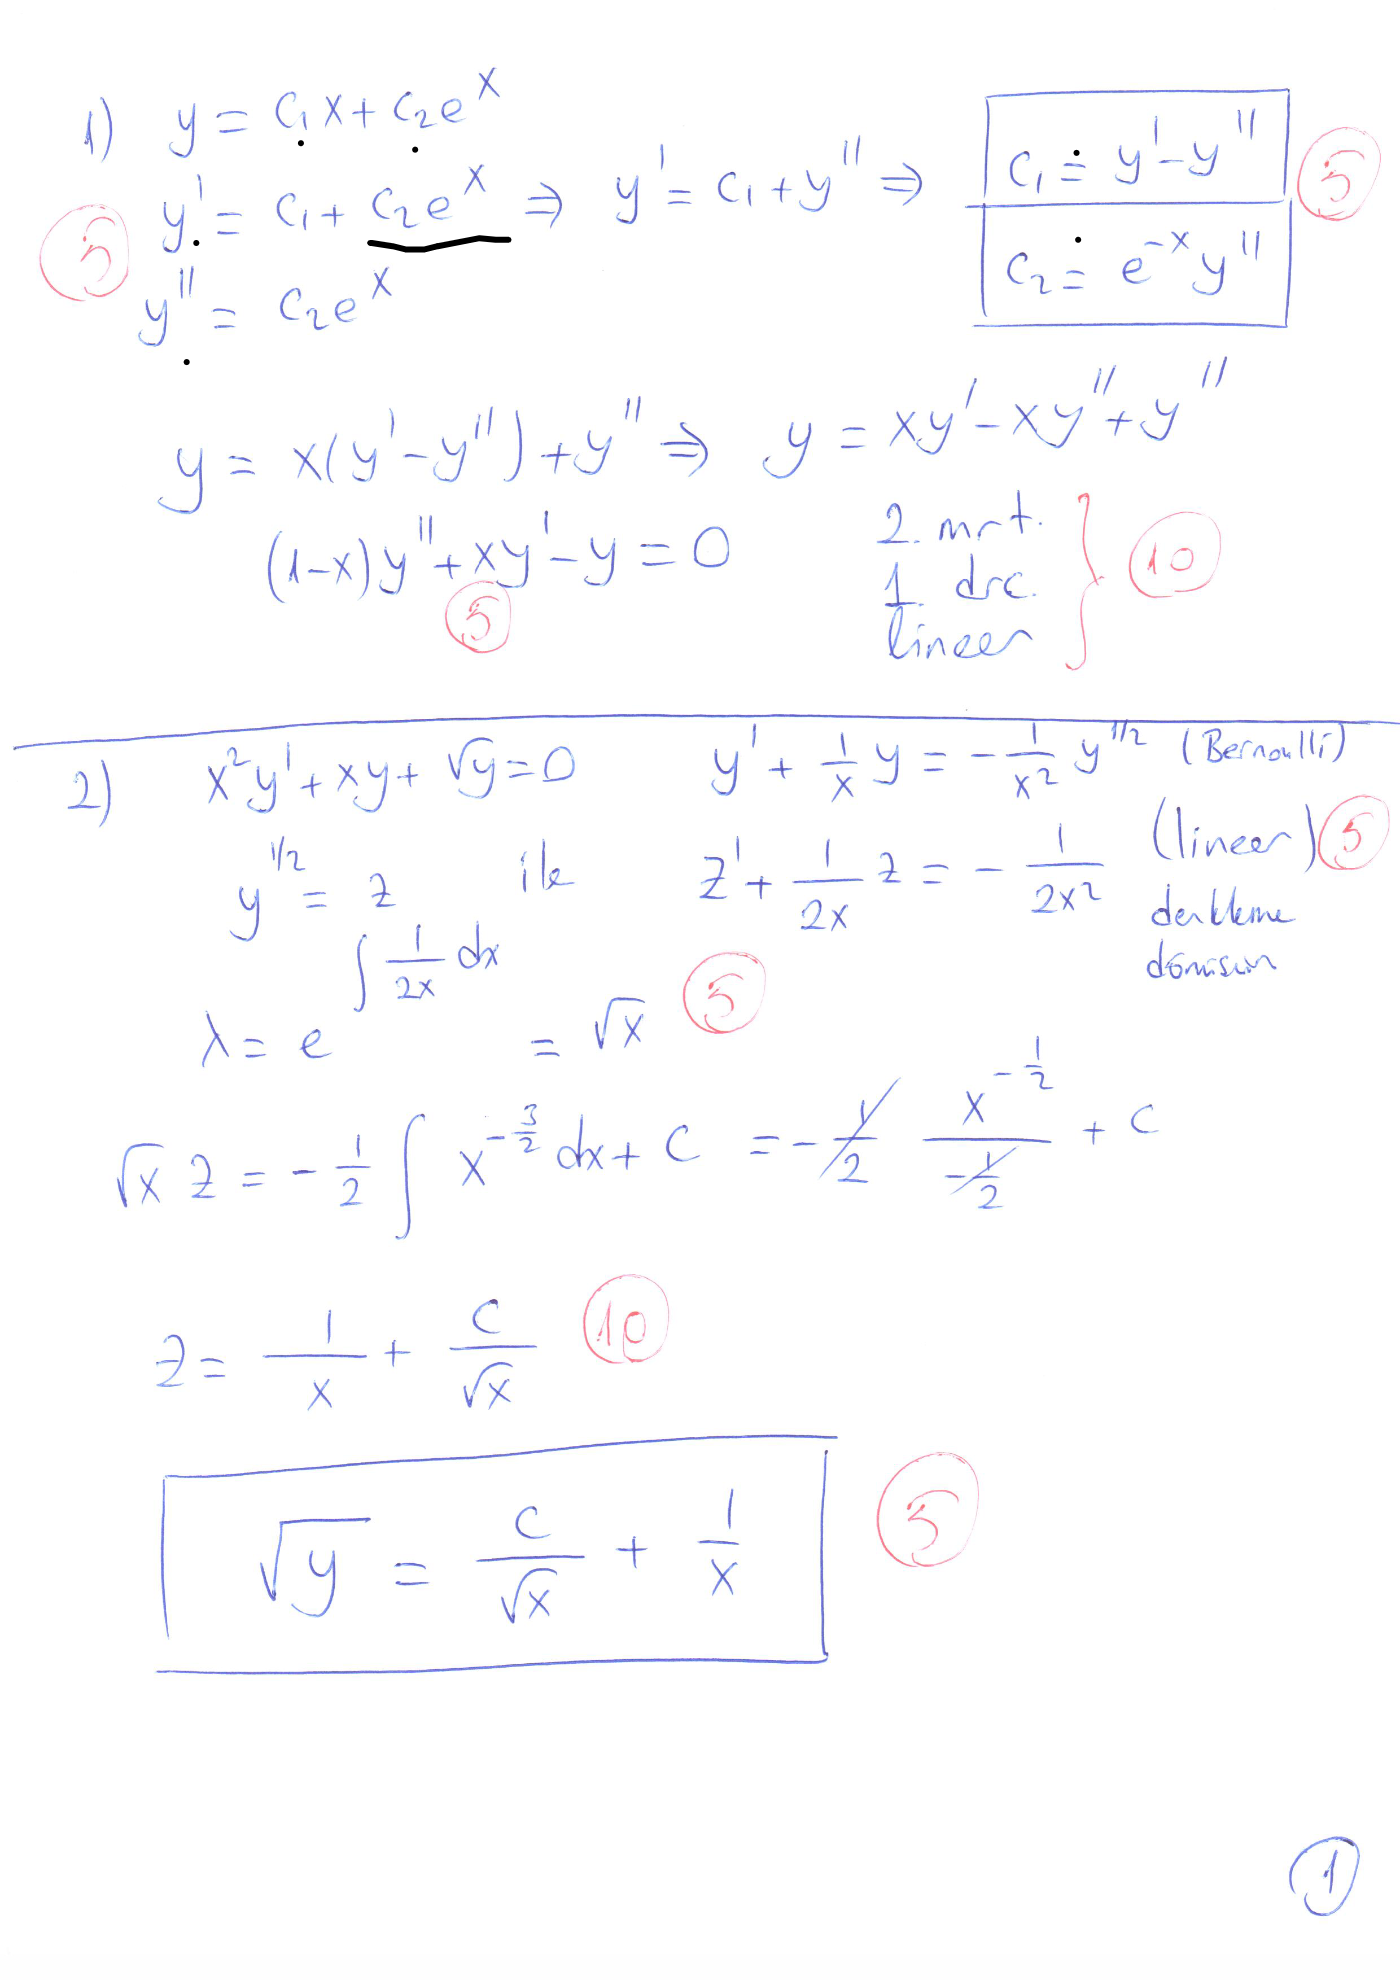 1) y = c₁x + c₂eˣ
y' = c₁ + c₂eˣ ⇒ y' = c₁ + y'' ⇒ c₁ = y' - y'' 5
5
c₂ = e⁻ˣy''
y'' = c₂eˣ
y = x(y' - y'') + y'' ⇒ y = xy' - xy'' + y''
(1-x)y'' + xy' - y = 0
5
2. mrt.
1. drc. } 10
lineer
2) x²y' + xy + √y = 0 y' + 1/x y = - 1/x² y^(1/2) (Bernoulli)
y^(1/2) = z ile z' + 1/(2x) z = - 1/(2x²) (lineer) 5
denkleme
dönüşsün
λ = e^(∫ 1/(2x) dx) = √x 5
√x z = - 1/2 ∫ x^(-3/2) dx + c = - 1/2 x^(-1/2)/(-1/2) + c
z = 1/x + c/√x 10
√y = c/√x + 1/x 5
1